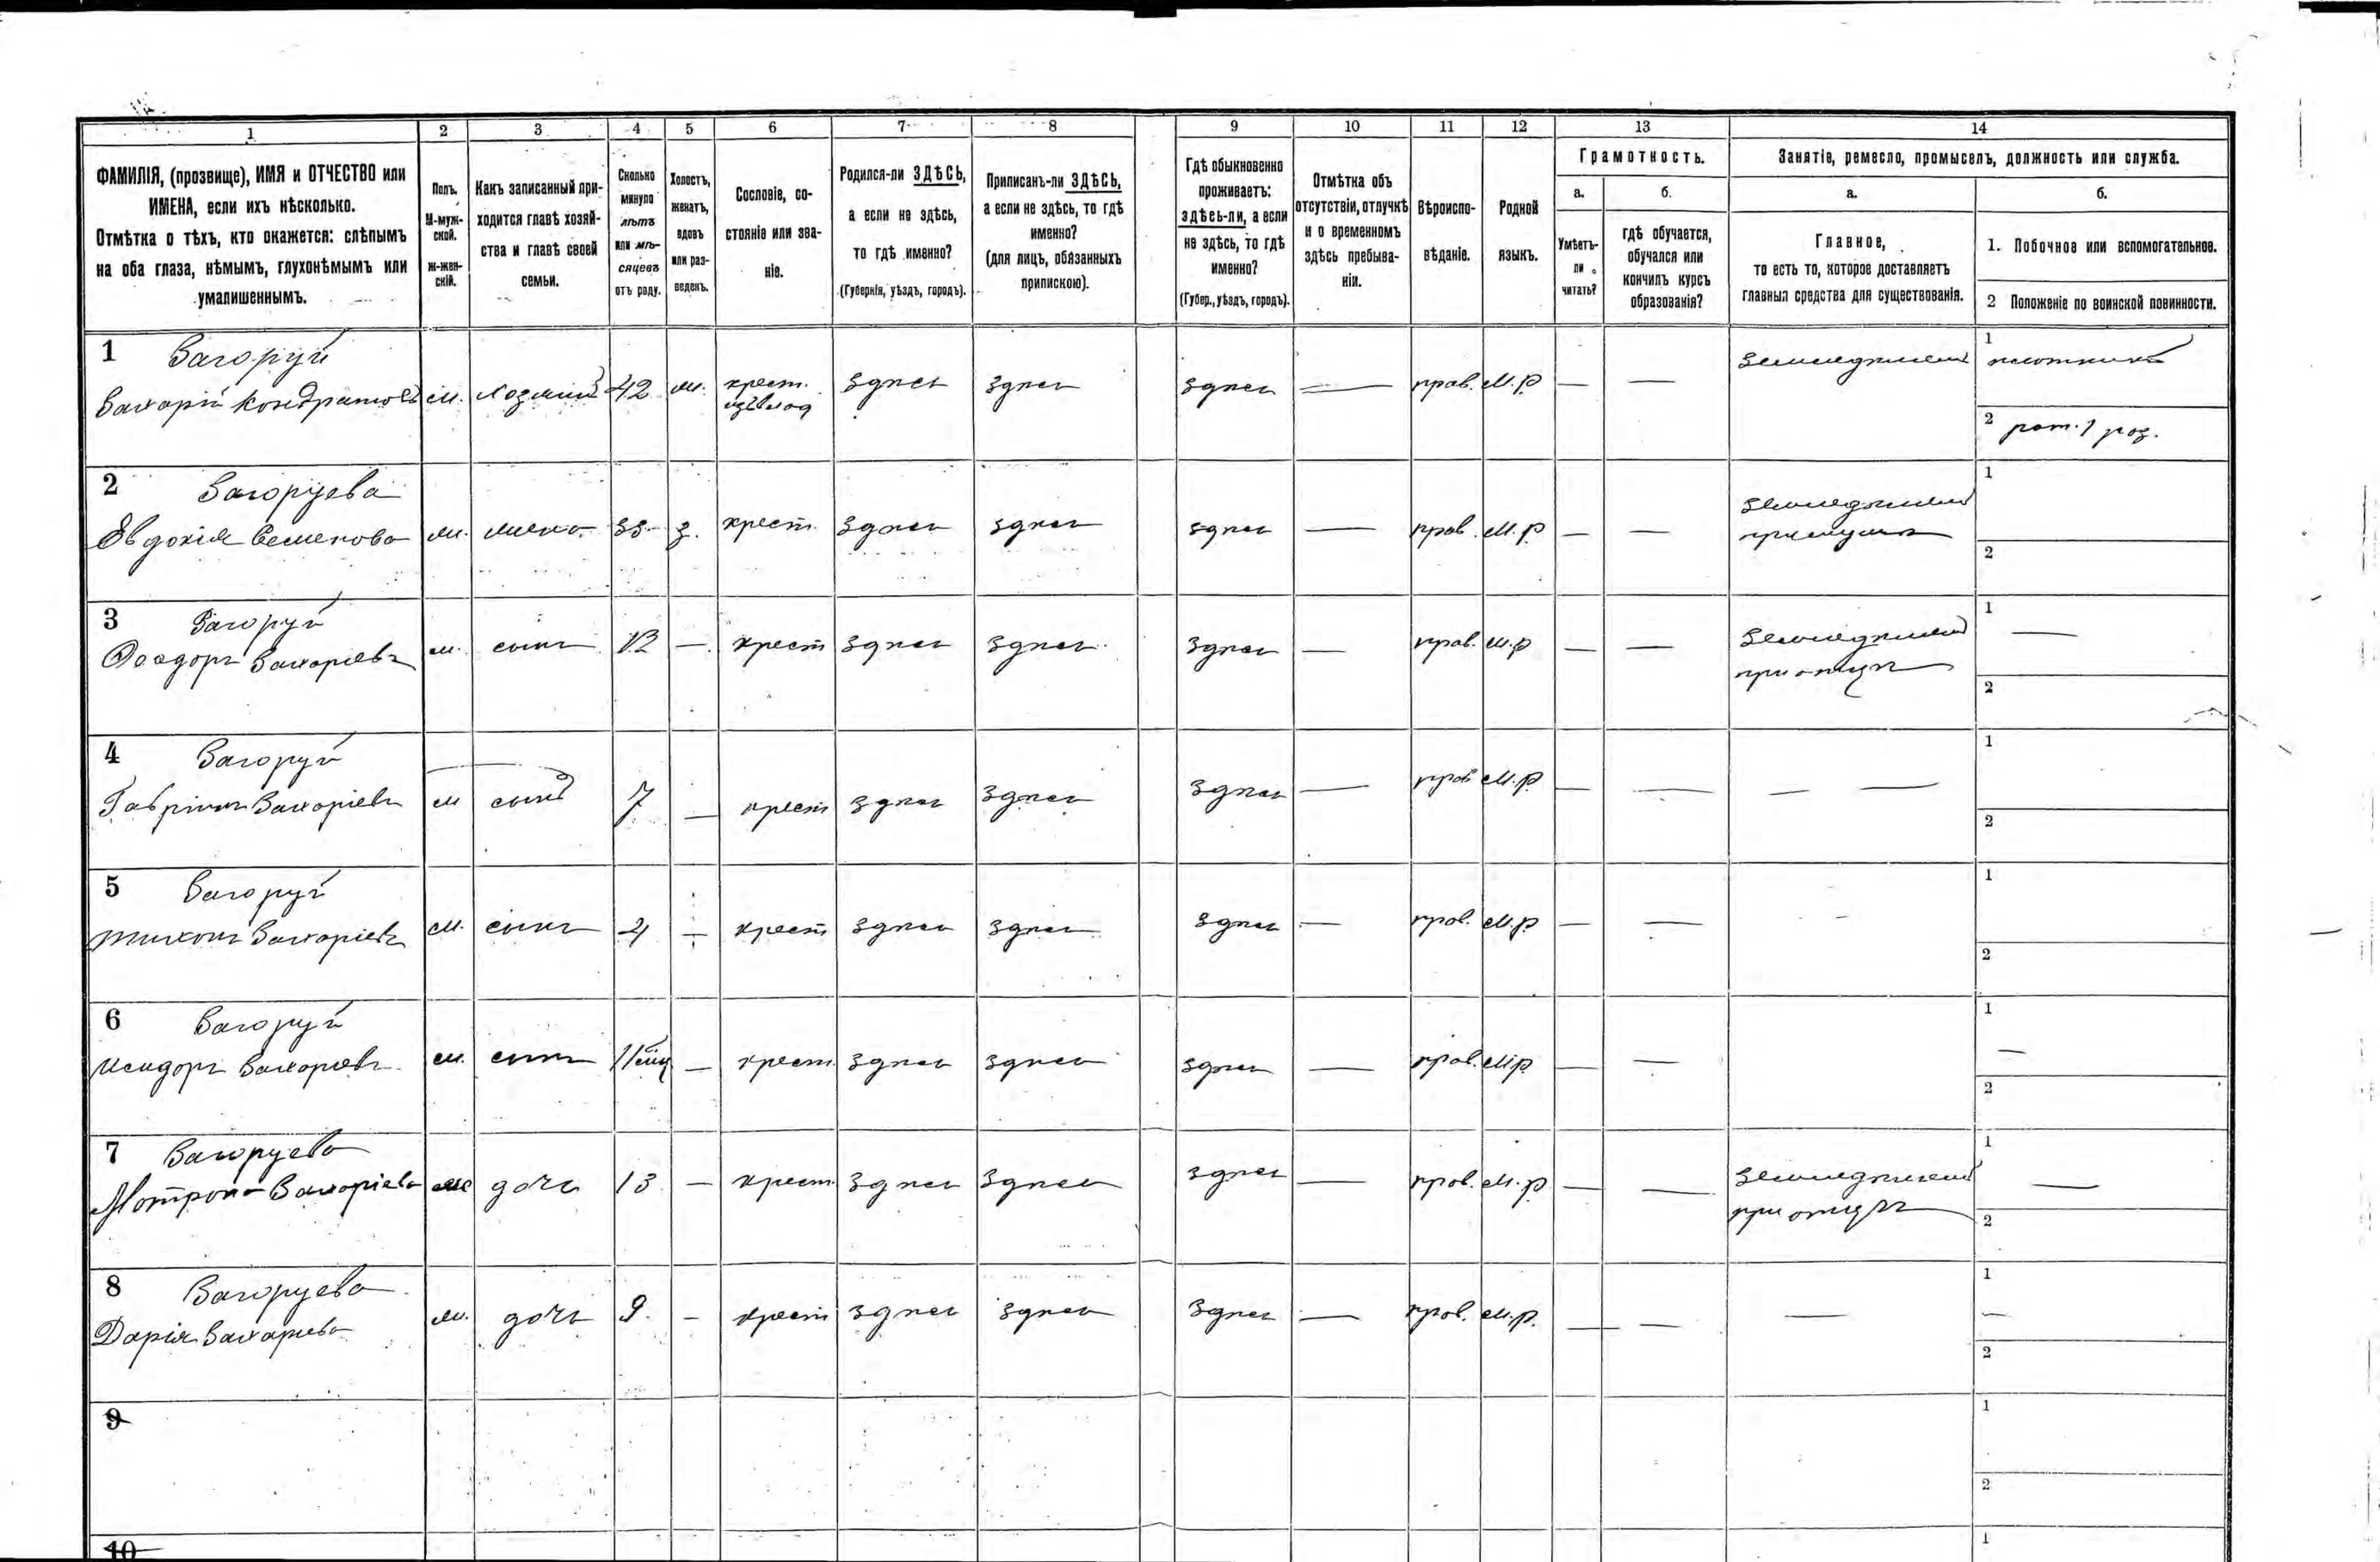 1 2 3 4 5 6 7 8 9 10 11 12 13 14
ФАМИЛІЯ, (прозвище), ИМЯ и ОТЧЕСТВО или
ИМЕНА, если ихъ нѣсколько.
Отмѣтка о тѣхъ, кто окажется: слѣпымъ
на оба глаза, нѣмымъ, глухонѣмымъ или
умалишеннымъ.
Полъ.
М-муж-
ской.
ж-жен-
скій.
Какъ записанный при-
ходится главѣ хозяй-
ства и главѣ своей
семьи.
Сколько
минуло
лѣтъ
или мѣ-
сяцевъ
отъ роду.
Холостъ,
женатъ,
вдовъ
или раз-
веденъ.
Сословіе, со-
стояніе или зва-
ніе.
Родился-ли ЗДѢСЬ,
а если не здѣсь,
то гдѣ именно?
(Губернія, уѣздъ, городъ).
Приписанъ-ли ЗДѢСЬ,
а если не здѣсь, то гдѣ
именно?
(для лицъ, обязанныхъ
припискою).
Гдѣ обыкновенно
проживаетъ:
здѣсь-ли, а если
не здѣсь, то гдѣ
именно?
(Губер., уѣздъ, городъ).
Отмѣтка объ
отсутствіи, отлучкѣ
и о временномъ
здѣсь пребыва-
ніи.
Вѣроиспо-
вѣданіе.
Родной
языкъ.
Грамотность.
а.
Умѣетъ-
ли
читать?
б.
гдѣ обучается,
обучался или
кончилъ курсъ
образованія?
Занятіе, ремесло, промыселъ, должность или служба.
а.
Главное,
то есть то, которое доставляетъ
главныя средства для существованія.
б.
1. Побочное или вспомогательное.
2 Положеніе по воинской повинности.
1 Загоруй
Захарій Кондратовъ м. хозяинъ 42 ж. крест. здѣсь здѣсь здѣсь — прав. М.р — — земледѣлецъ 1 плотникъ
2 рат. 1 раз.
2 Загоруева
Евдокія Семенова ж. жена 33 з. крест. здѣсь здѣсь здѣсь — прав. М.р — — земледѣлецъ 1
при мужѣ 2
3 Загоруй
Ѳеодоръ Захаріевъ м. сынъ 12 — крест здѣсь здѣсь здѣсь — прав. М.р — — земледѣлецъ 1 —
при отцѣ 2
4 Загоруй
Гавріилъ Захаріевъ м сынъ 7 — крест здѣсь здѣсь здѣсь — прав М.р — — — — 1
2
5 Загоруй
Тихонъ Захаріевъ м. сынъ — крест здѣсь здѣсь здѣсь — прав. М.р — — 1
2
6 Загоруй
Исидоръ Захаріевъ м. сынъ — крест здѣсь здѣсь здѣсь — прав. М.р — — 1 —
2
7 Загоруева
Мотрона Захаріева ж дочь 13 — крест. здѣсь здѣсь здѣсь — прав. М.р — — земледѣлецъ 1 —
при отцѣ 2
8 Загоруева
Дарія Захаріева ж. дочь 9. — крест здѣсь здѣсь здѣсь — прав. М.р. — — — 1 —
2
9 1
2
10 1